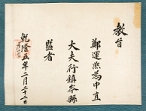 教旨
鄭運熙爲中直
大夫行鎭岑縣
監者
乾隆五年二月二十八日